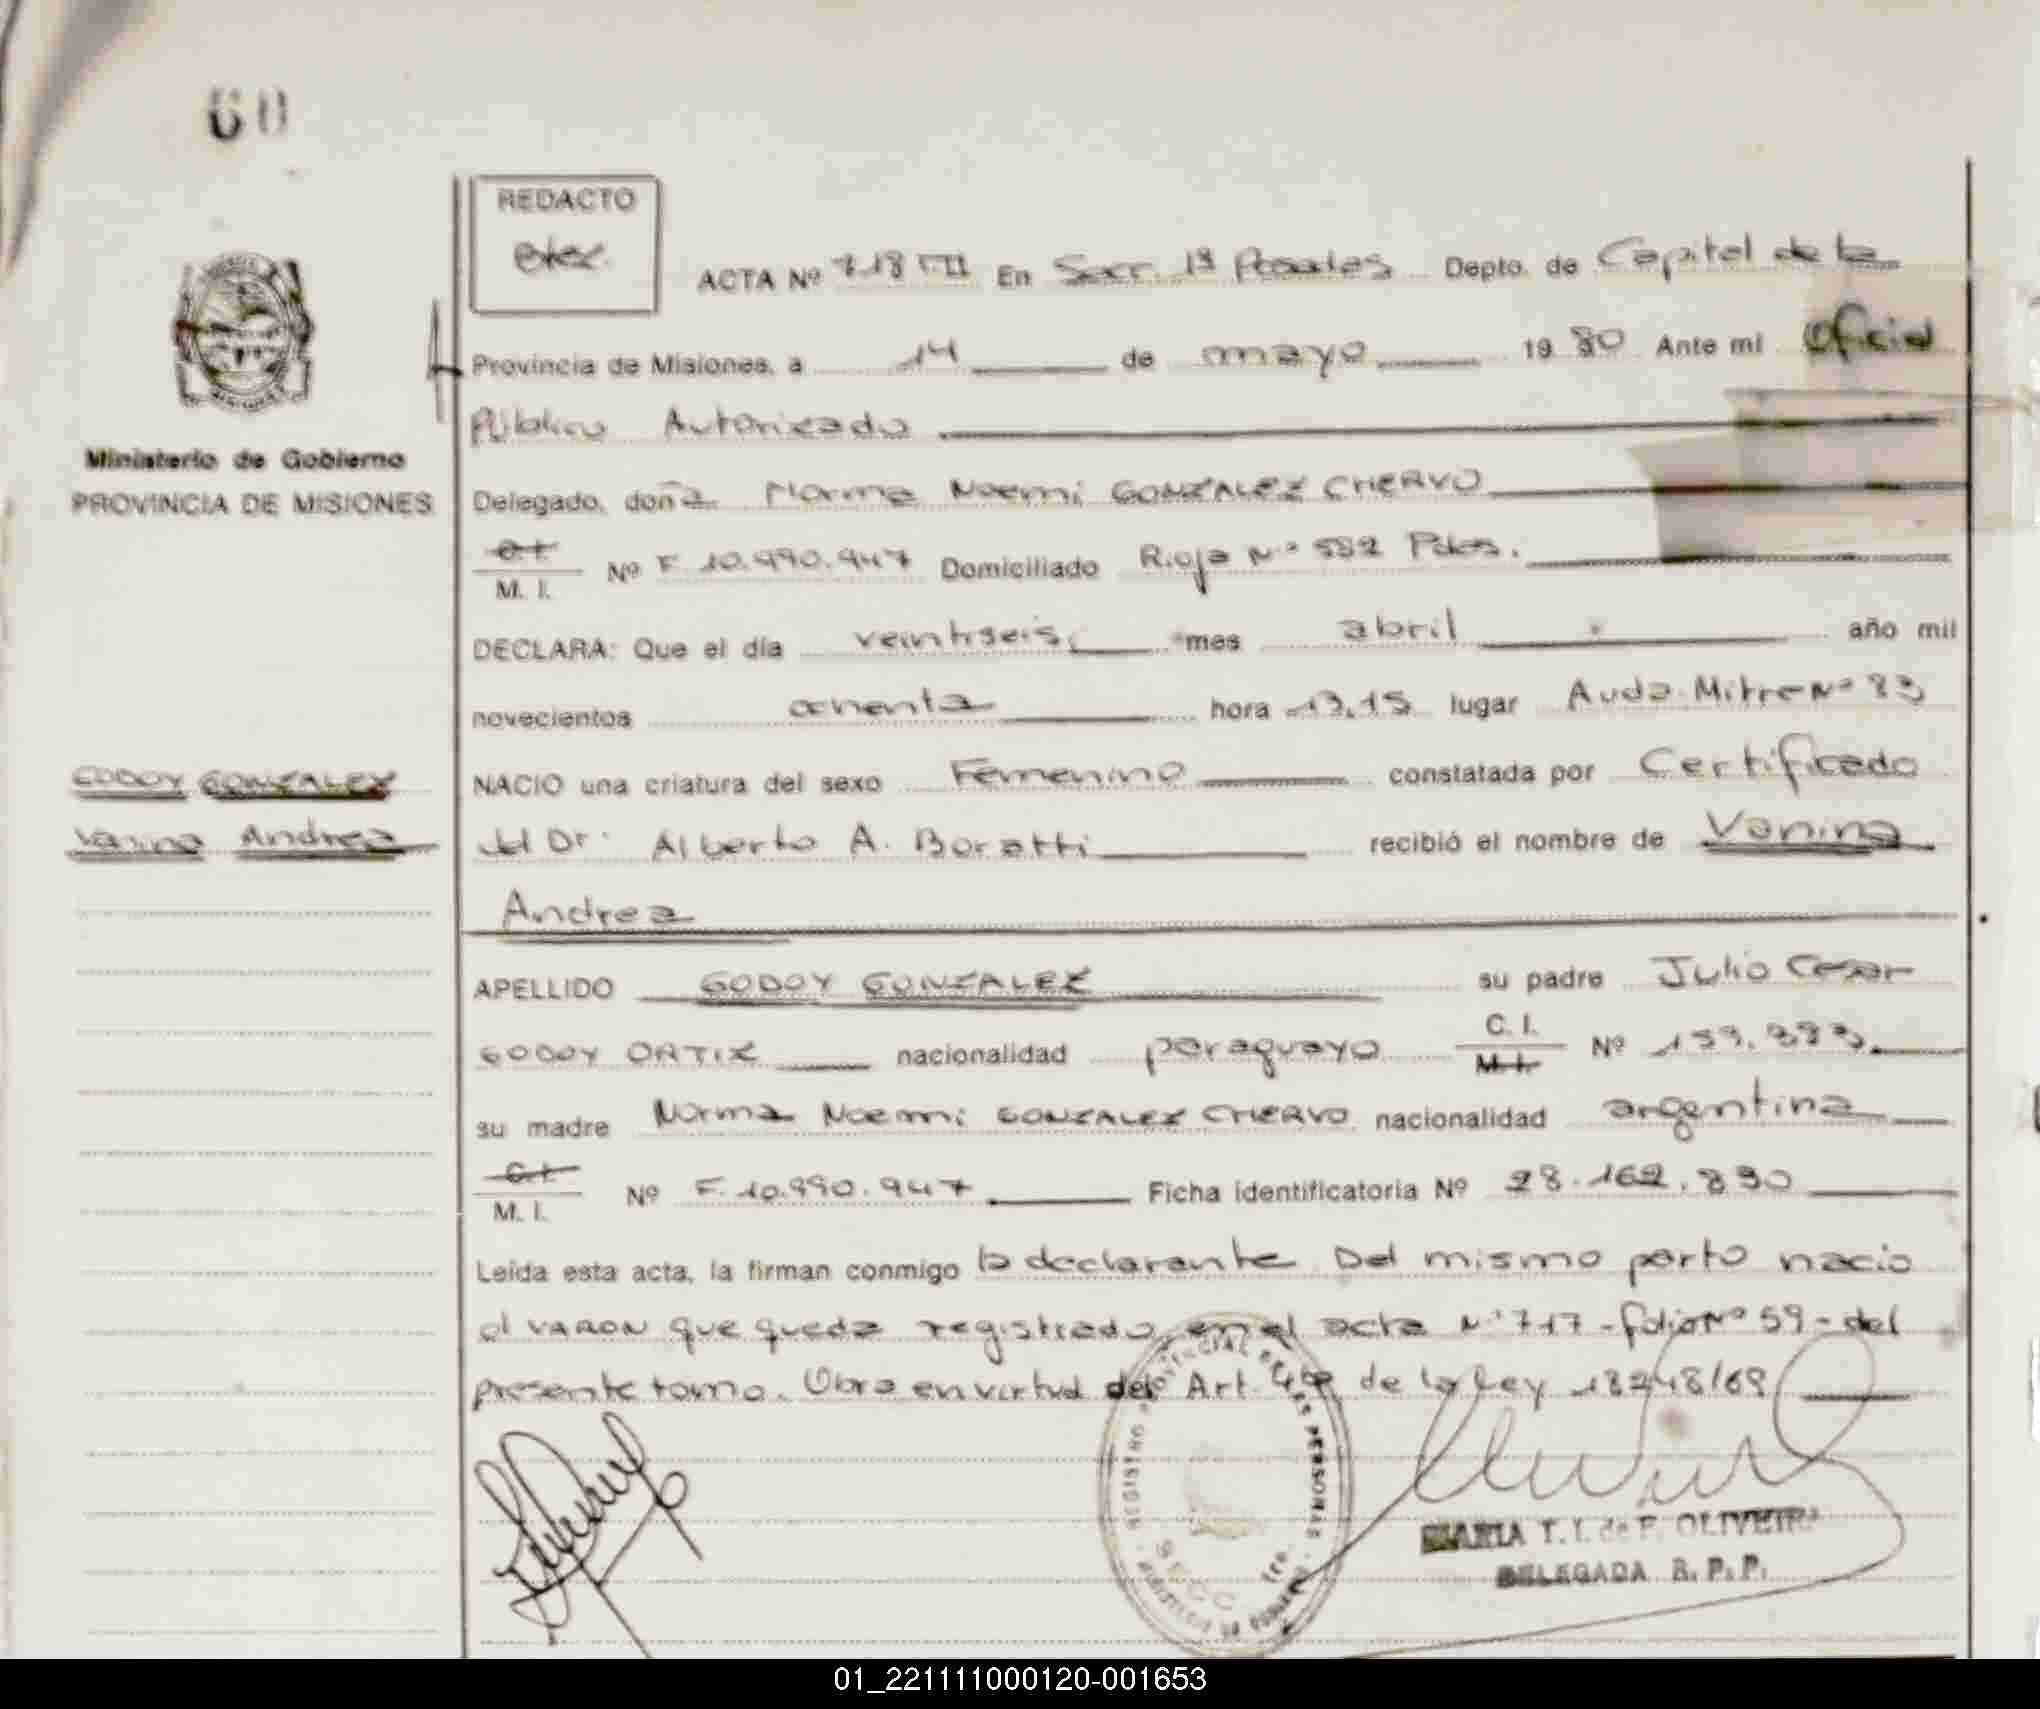 60
REDACTO
ACTA Nº 718 T.III En Secc. 1ª Posadas Depto. de Capital de la
Provincia de Misiones, a 14 de mayo 1980 Ante mi Oficial
Público Autorizado
Ministerio de Gobierno
PROVINCIA DE MISIONES
Delegado, doña Norma Noemi GONZALEZ CHERVO
C.I.
M. I. Nº F 10.990.947 Domiciliado Rioja Nº 582 Pdas.
DECLARA: Que el día veintiseis, mes abril año mil
novecientos ochenta hora 13,15 lugar Avda. Mitre Nº 83
GODOY GONZALEZ
Vanina Andrea
NACIO una criatura del sexo Femenino constatada por Certificado
del Dr. Alberto A. Boratti recibió el nombre de Vanina
Andrea
APELLIDO GODOY GONZALEZ su padre Julio Cesar
GODOY ORTIZ nacionalidad paraguayo C. I.
M.I. Nº 159.383.
su madre Norma Noemi GONZALEZ CHERVO nacionalidad argentina
C.I.
M. I. Nº F. 10.990.947 Ficha identificatoria Nº 28.162.890
Leída esta acta, la firman conmigo la declarante Del mismo parto nacio
el VARON que queda registrado en el acta Nº 717 - folio Nº 59 - del
presente tomo. Obra en virtud del Art. 4º de la Ley 18248/69
REGISTRO PROVINCIAL DE LAS PERSONAS
MARIA T. I. de F. OLIVEIRA
DELEGADA R. P. P.
01_221111000120-001653